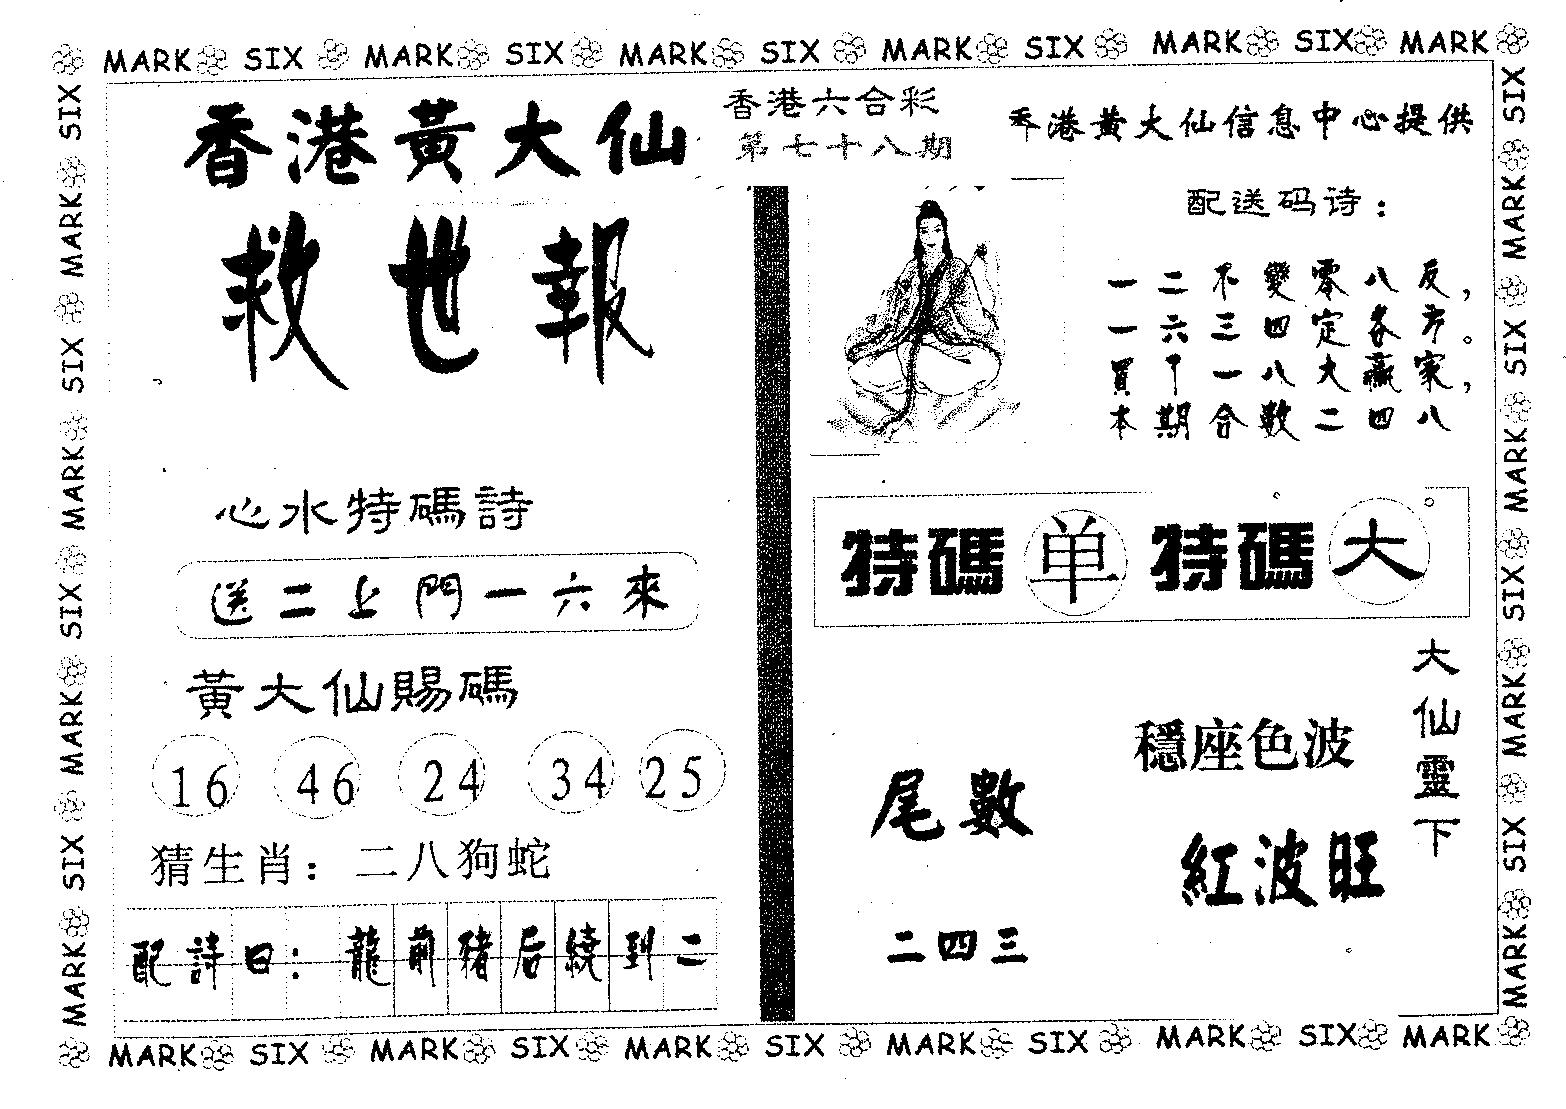 MARK SIX MARK SIX MARK SIX MARK SIX MARK SIX MARK
香港黃大仙
救世報
香港六合彩
第七十八期
香港黃大仙信息中心提供
配送码诗：
一二不變零八反，
一六三四定各方。
買下一八大贏家，
本期合数二四八
心水特碼詩
送二上門一六來
黃大仙賜碼
16 46 24 34 25
猜生肖：二八狗蛇
配詩曰：龍前豬后繞到二
特碼 单 特碼 大
大仙靈下
穩座色波
紅波旺
尾數
二四三
SIX MARK SIX MARK SIX MARK SIX MARK
SIX MARK SIX MARK SIX MARK SIX MARK
MARK SIX MARK SIX MARK SIX MARK SIX MARK SIX MARK